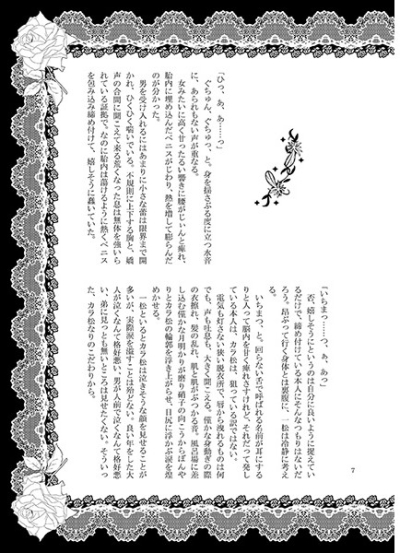 「ひっ、あ、あ――っ」
　ぐちゅん、ぐちゅっ、と、身を揺さぶる度に立つ水音
に、あられもない声が重なる。
　女みたいに高く甘ったるい響きに腰がじぃんと痺れ、
胎内に埋め込んだペニスがじわり、熱を増して膨らんだ
のが分かった。
　男を受け入れるにはあまりに小さな蕾は限界まで開
かれ、ひくひく喘いでいる。不規則に上下する胸と、嬌
声の合間に聞こえて来る荒くなった息は無体を強いら
れている証拠で。なのに胎内は蕩けるように熱くペニス
を包み込み締め付けて、嬉しそうに蠢いていた。
「いちまっ……つ、ぁ、あっ」
　否、嬉しそうにというのは自分に良いように捉えてい
るだけで、締め付けている本人にそんなつもりはないだ
ろう。昂ぶって行く身体とは裏腹に、一松は冷静に考え
る。
　いちまつ、と、回らない舌で呼ばれる名前が耳にする
りと入って脳内を甘く痺れさすけれど、それだって発し
ている本人は、カラ松は、狙っている訳ではない。
　電気も灯さない狭い脱衣所で、唇から洩れるものは何
でも、声も吐息も、大きく聞こえる。僅かな身動ぎの際
の衣擦れ、髪の乱れ、肌と肌がぶつかる音。風呂場に差
し込む僅かな月明かりが磨り硝子の向こうからぼんや
りとカラ松の輪郭を浮き上がらせ、目尻に浮かぶ涙を煌
めかせる。
　一松といるとカラ松は泣きそうな顔を見せることが
多いが、実際涙を溢すことは殆どない。良い年をした大
人が泣くなんて格好悪い、男が人前で泣くなんて格好悪
い、弟に見っとも無いところは見せたくない。そういっ
た、カラ松なりのこだわりから。
7